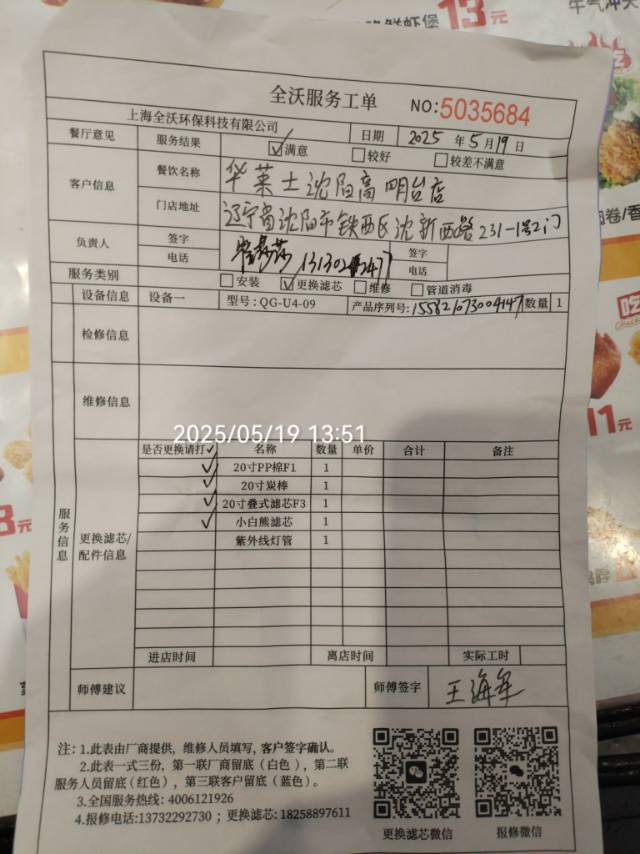 鲜虾堡 13元
全沃服务工单 NO:5035684
上海全沃环保科技有限公司 日期 2025年5月19日
餐厅意见 服务结果 ☑满意 □较好 □较差不满意
客户信息 餐饮名称 华莱士沈阳高明台店
门店地址 辽宁省沈阳市铁西区沈新西路231-1号2门
负责人 签字 签字
电话 电话
服务类别 □安装 ☑更换滤芯 □维修 □管道消毒
设备信息 设备一 型号:QG-U4-09 产品序列号:155821073004147 数量 1
检修信息
维修信息
2025/05/19 13:51
服务信息
更换滤芯/配件信息
是否更换请打✓ 名称 数量 单价 合计 备注
✓ 20寸PP棉F1 1
✓ 20寸炭棒 1
✓ 20寸叠式滤芯F3 1
✓ 小白熊滤芯 1
紫外线灯管 1
进店时间 离店时间 实际工时
师傅建议 师傅签字 王海军
注:1.此表由厂商提供,维修人员填写,客户签字确认。
2.此表一式三份,第一联厂商留底(白色),第二联
服务人员留底(红色),第三联客户留底(蓝色)。
3.全国服务热线: 4006121926
4.报修电话:13732292730 ; 更换滤芯: 18258897611
更换滤芯微信 报修微信
11元